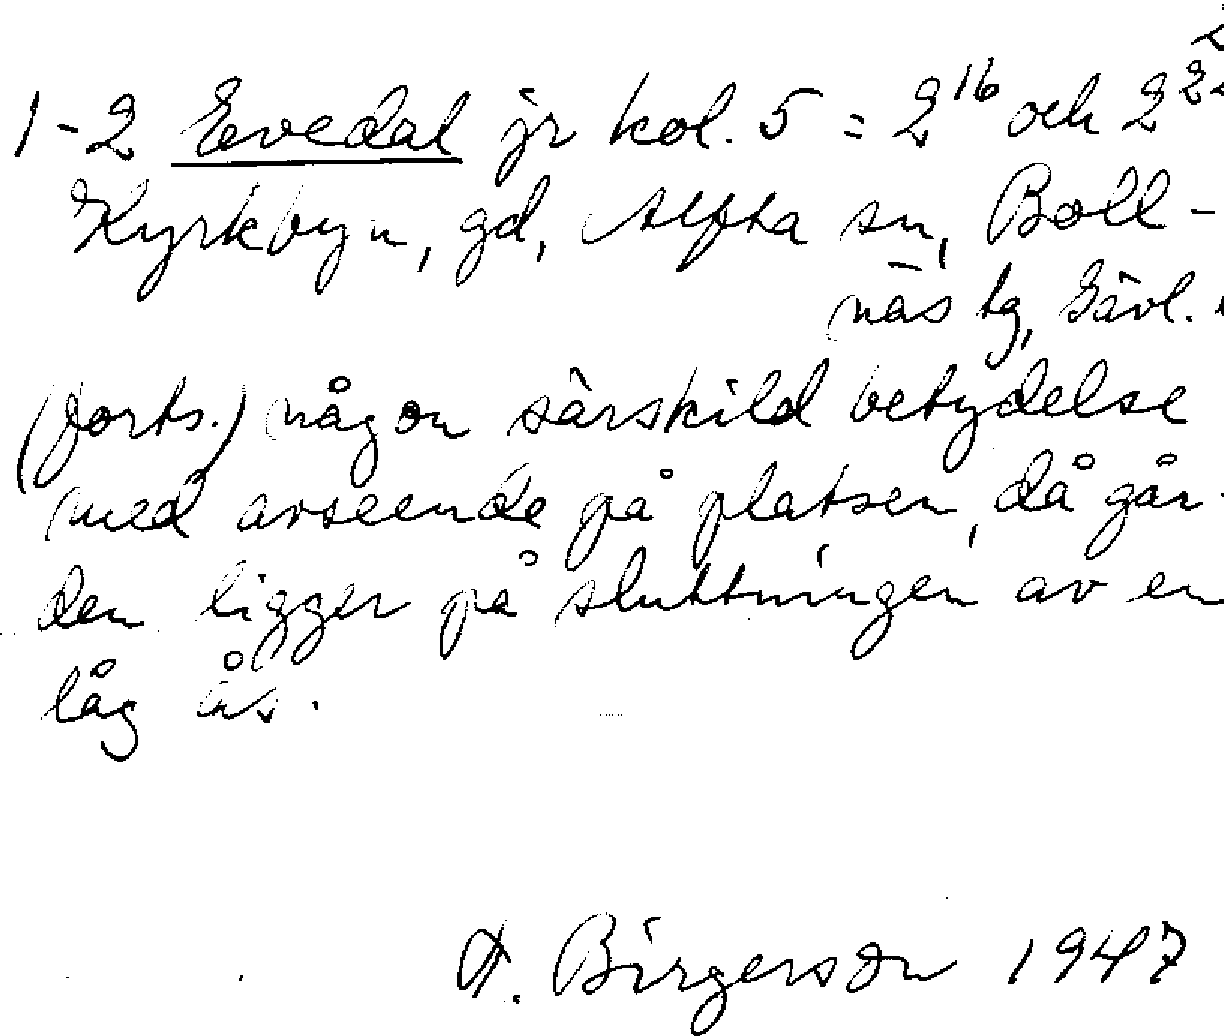 1-2 Evedal jr kol. 5 = 2¹⁶ och 2²
Kyrkbyn, gd, Alfta sn, Boll-
näs tg, Gävl.
(forts.) någon särskild betydelse
med avseende på platsen, då går-
den ligger på sluttningen av en
låg ås.
A. Birgerson 1947